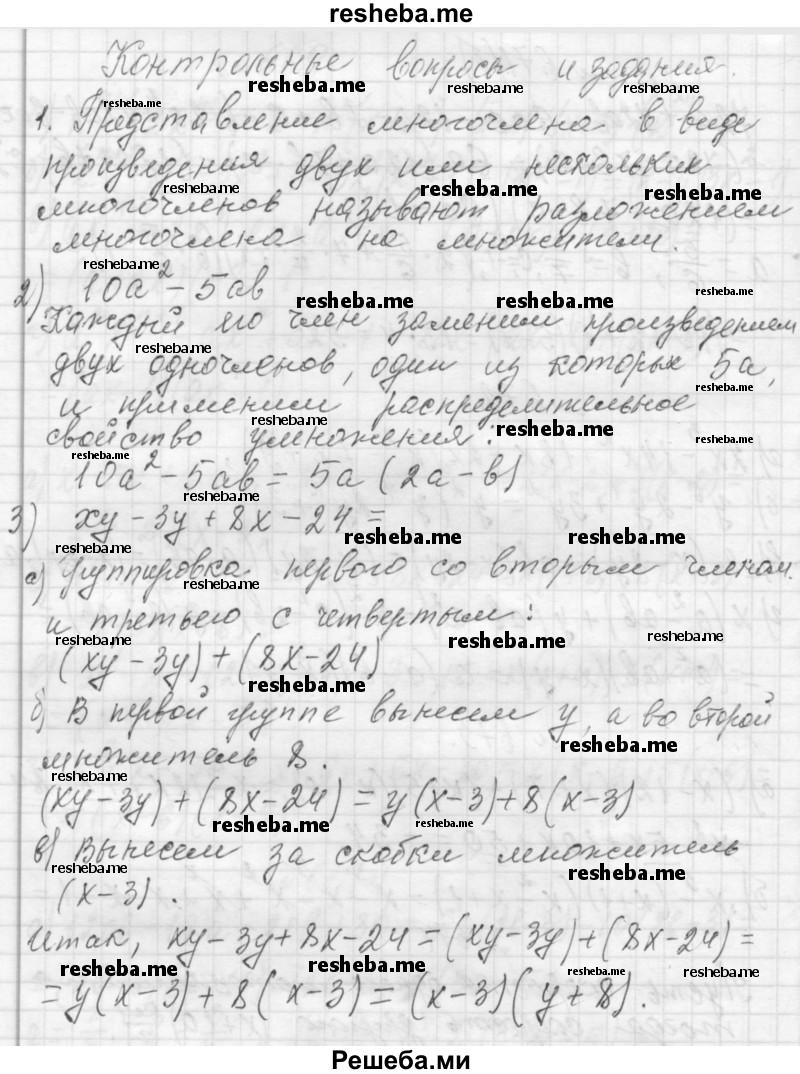 resheba.me
Контрольные вопросы и задания.
1. Представление многочлена в виде
произведения двух или нескольких
многочленов называют разложением
многочлена на множители.
2) 10a² - 5ab
Каждый его член заменим произведением
двух одночленов, один из которых 5a,
и применим распределительное
свойство умножения:
10a² - 5ab = 5a (2a - b)
3) xy - 3y + 8x - 24 =
а) Группировка первого со вторым членом.
и третьего с четвертым:
(xy - 3y) + (8x - 24)
б) В первой группе вынесем y, а во второй
множитель 8.
(xy - 3y) + (8x - 24) = y(x - 3) + 8(x - 3)
в) Вынесем за скобки множитель
(x - 3).
Итак, xy - 3y + 8x - 24 = (xy - 3y) + (8x - 24) =
= y(x - 3) + 8(x - 3) = (x - 3)(y + 8).
Решеба.ми